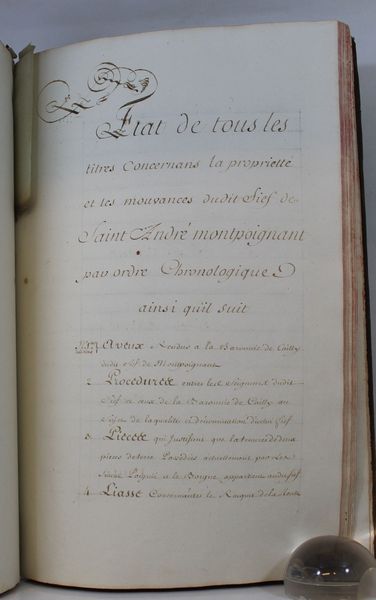 Etat de tous les
titres Concernans la proprieté
et les mouvances dudit Fief de
Saint André montpoignant
par ordre Chronologique
ainsi qu'il suit
1 Aveux Rendus a la Baronnie de Cailly
dudit fief de Montpoignant
2 Procedures entre les Seigneurs dudit
Fief et ceux de la Baronnie de Cailly au
Sujet de la qualité et dénomination dudit fief
3 Pieces qui Justifient que la tenure de deux
pieces de terre Possedées actuellement par Les
et le Borgne, appartient audit fief
4 Liasse Concernant le